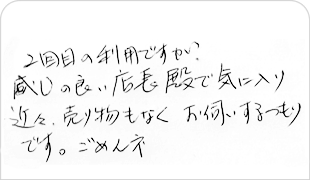 2回目の利用ですが？
感じの良い店長殿で気に入り
近々、売り物もなく お伺いするつもり
です。ごめんネ